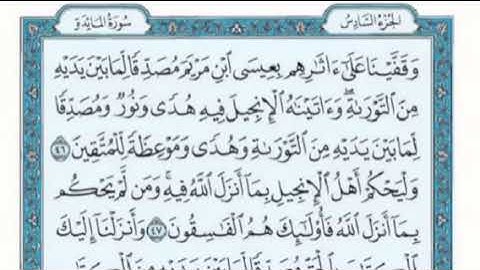 الجزء السادس
سورة المائدة
وَقَفَّيْنَا عَلَىٰٓ ءَاثَٰرِهِم بِعِيسَى ٱبْنِ مَرْيَمَ مُصَدِّقًا لِّمَا بَيْنَ يَدَيْهِ
مِنَ ٱلتَّوْرَىٰةِ ۖ وَءَاتَيْنَٰهُ ٱلْإِنجِيلَ فِيهِ هُدًى وَنُورٌ وَمُصَدِّقًا
لِّمَا بَيْنَ يَدَيْهِ مِنَ ٱلتَّوْرَىٰةِ وَهُدًى وَمَوْعِظَةً لِّلْمُتَّقِينَ ٤٦
وَلْيَحْكُمْ أَهْلُ ٱلْإِنجِيلِ بِمَآ أَنزَلَ ٱللَّهُ فِيهِ ۚ وَمَن لَّمْ يَحْكُم
بِمَآ أَنزَلَ ٱللَّهُ فَأُو۟لَٰٓئِكَ هُمُ ٱلْفَٰسِقُونَ ٤٧ وَأَنزَلْنَآ إِلَيْكَ
مُصَدِّقًا لِّمَا بَيْنَ يَدَيْهِ مِنَ